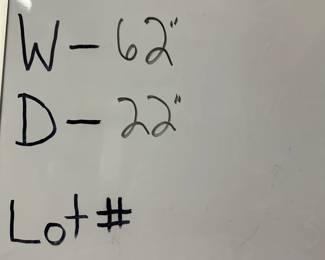 W - 62"
D - 22"
Lot #